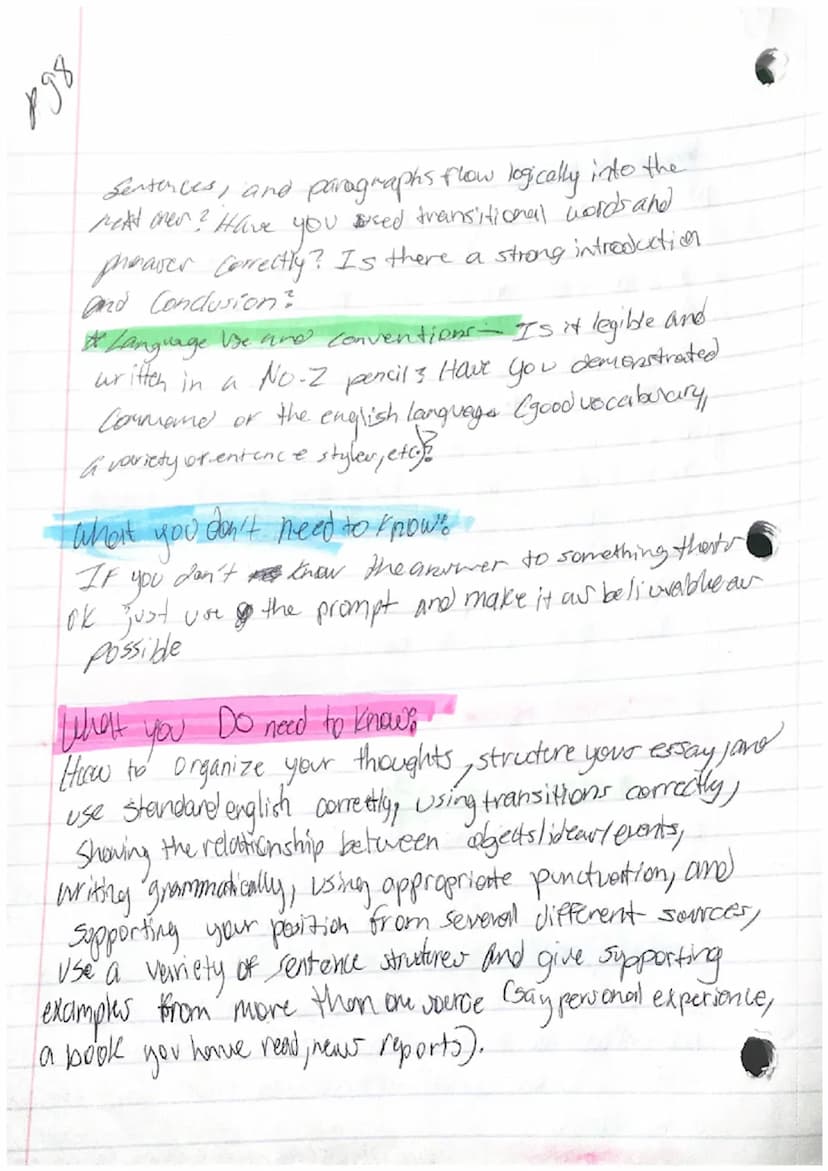 pg8
Sentences, and paragraphs flow logically into the
next ones? Have you used transitional words and
phrases correctly? Is there a strong introduction
and Conclusion?
* Language Use and conventions- Is it legible and
written in a No-2 pencil? Have you demonstrated
Command of the english language (good vocabulary,
a variety of entence styles, etc)?
What you don't need to know:
If you don't know the answer to something thats
ok just use the prompt and make it as belivable as
possible
What you Do need to know:
How to organize your thoughts, structure your essay, and
use standard english correctly, using transitions correctly,
Showing the relationship between objects/ideas/events,
writing grammatically, using appropriate punctuation, and
supporting your position from several different sources,
use a variety of sentence structures and give supporting
examples from more than one source (say personal experience,
a book you have read, news reports).